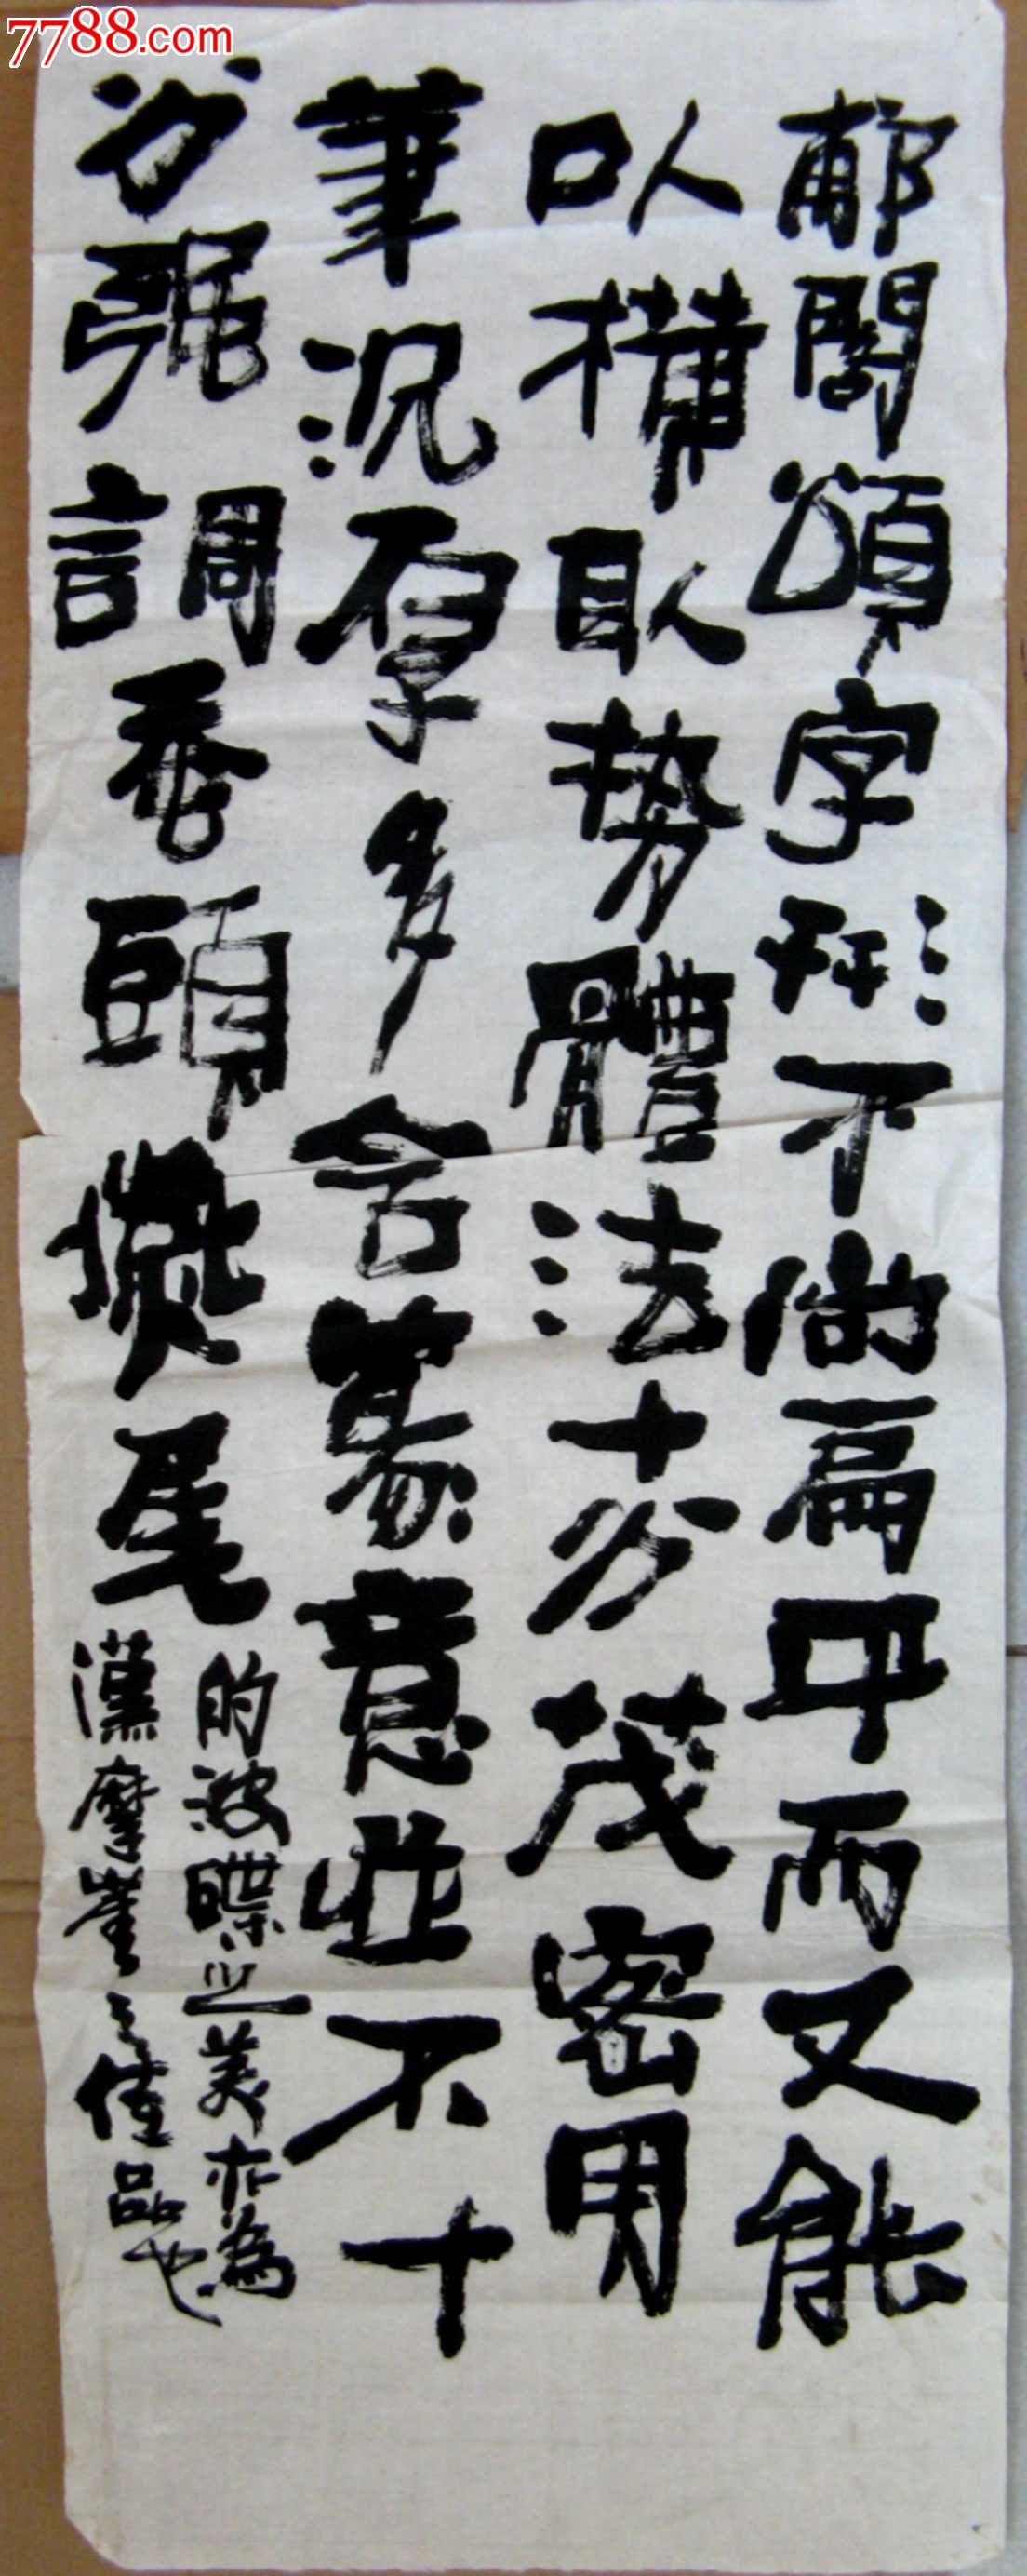 7788.com
郙閣頌字形不尚扁平而又能
以橫取势體法十分茂密用
筆沉厚多含篆意並不十
分强調蚕頭燕尾
的波磔之美亦為
漢摩崖之佳品也